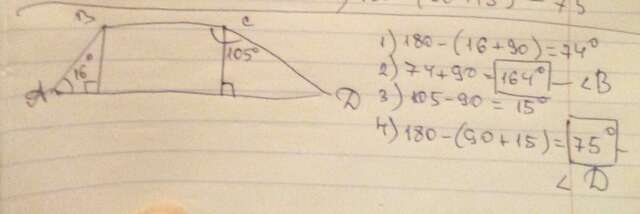 B
C
16°
105°
A
D
1) 180-(16+90)=74°
2) 74+90=164° - <B
3) 105-90=15°
4) 180-(90+15)=75° -
< D